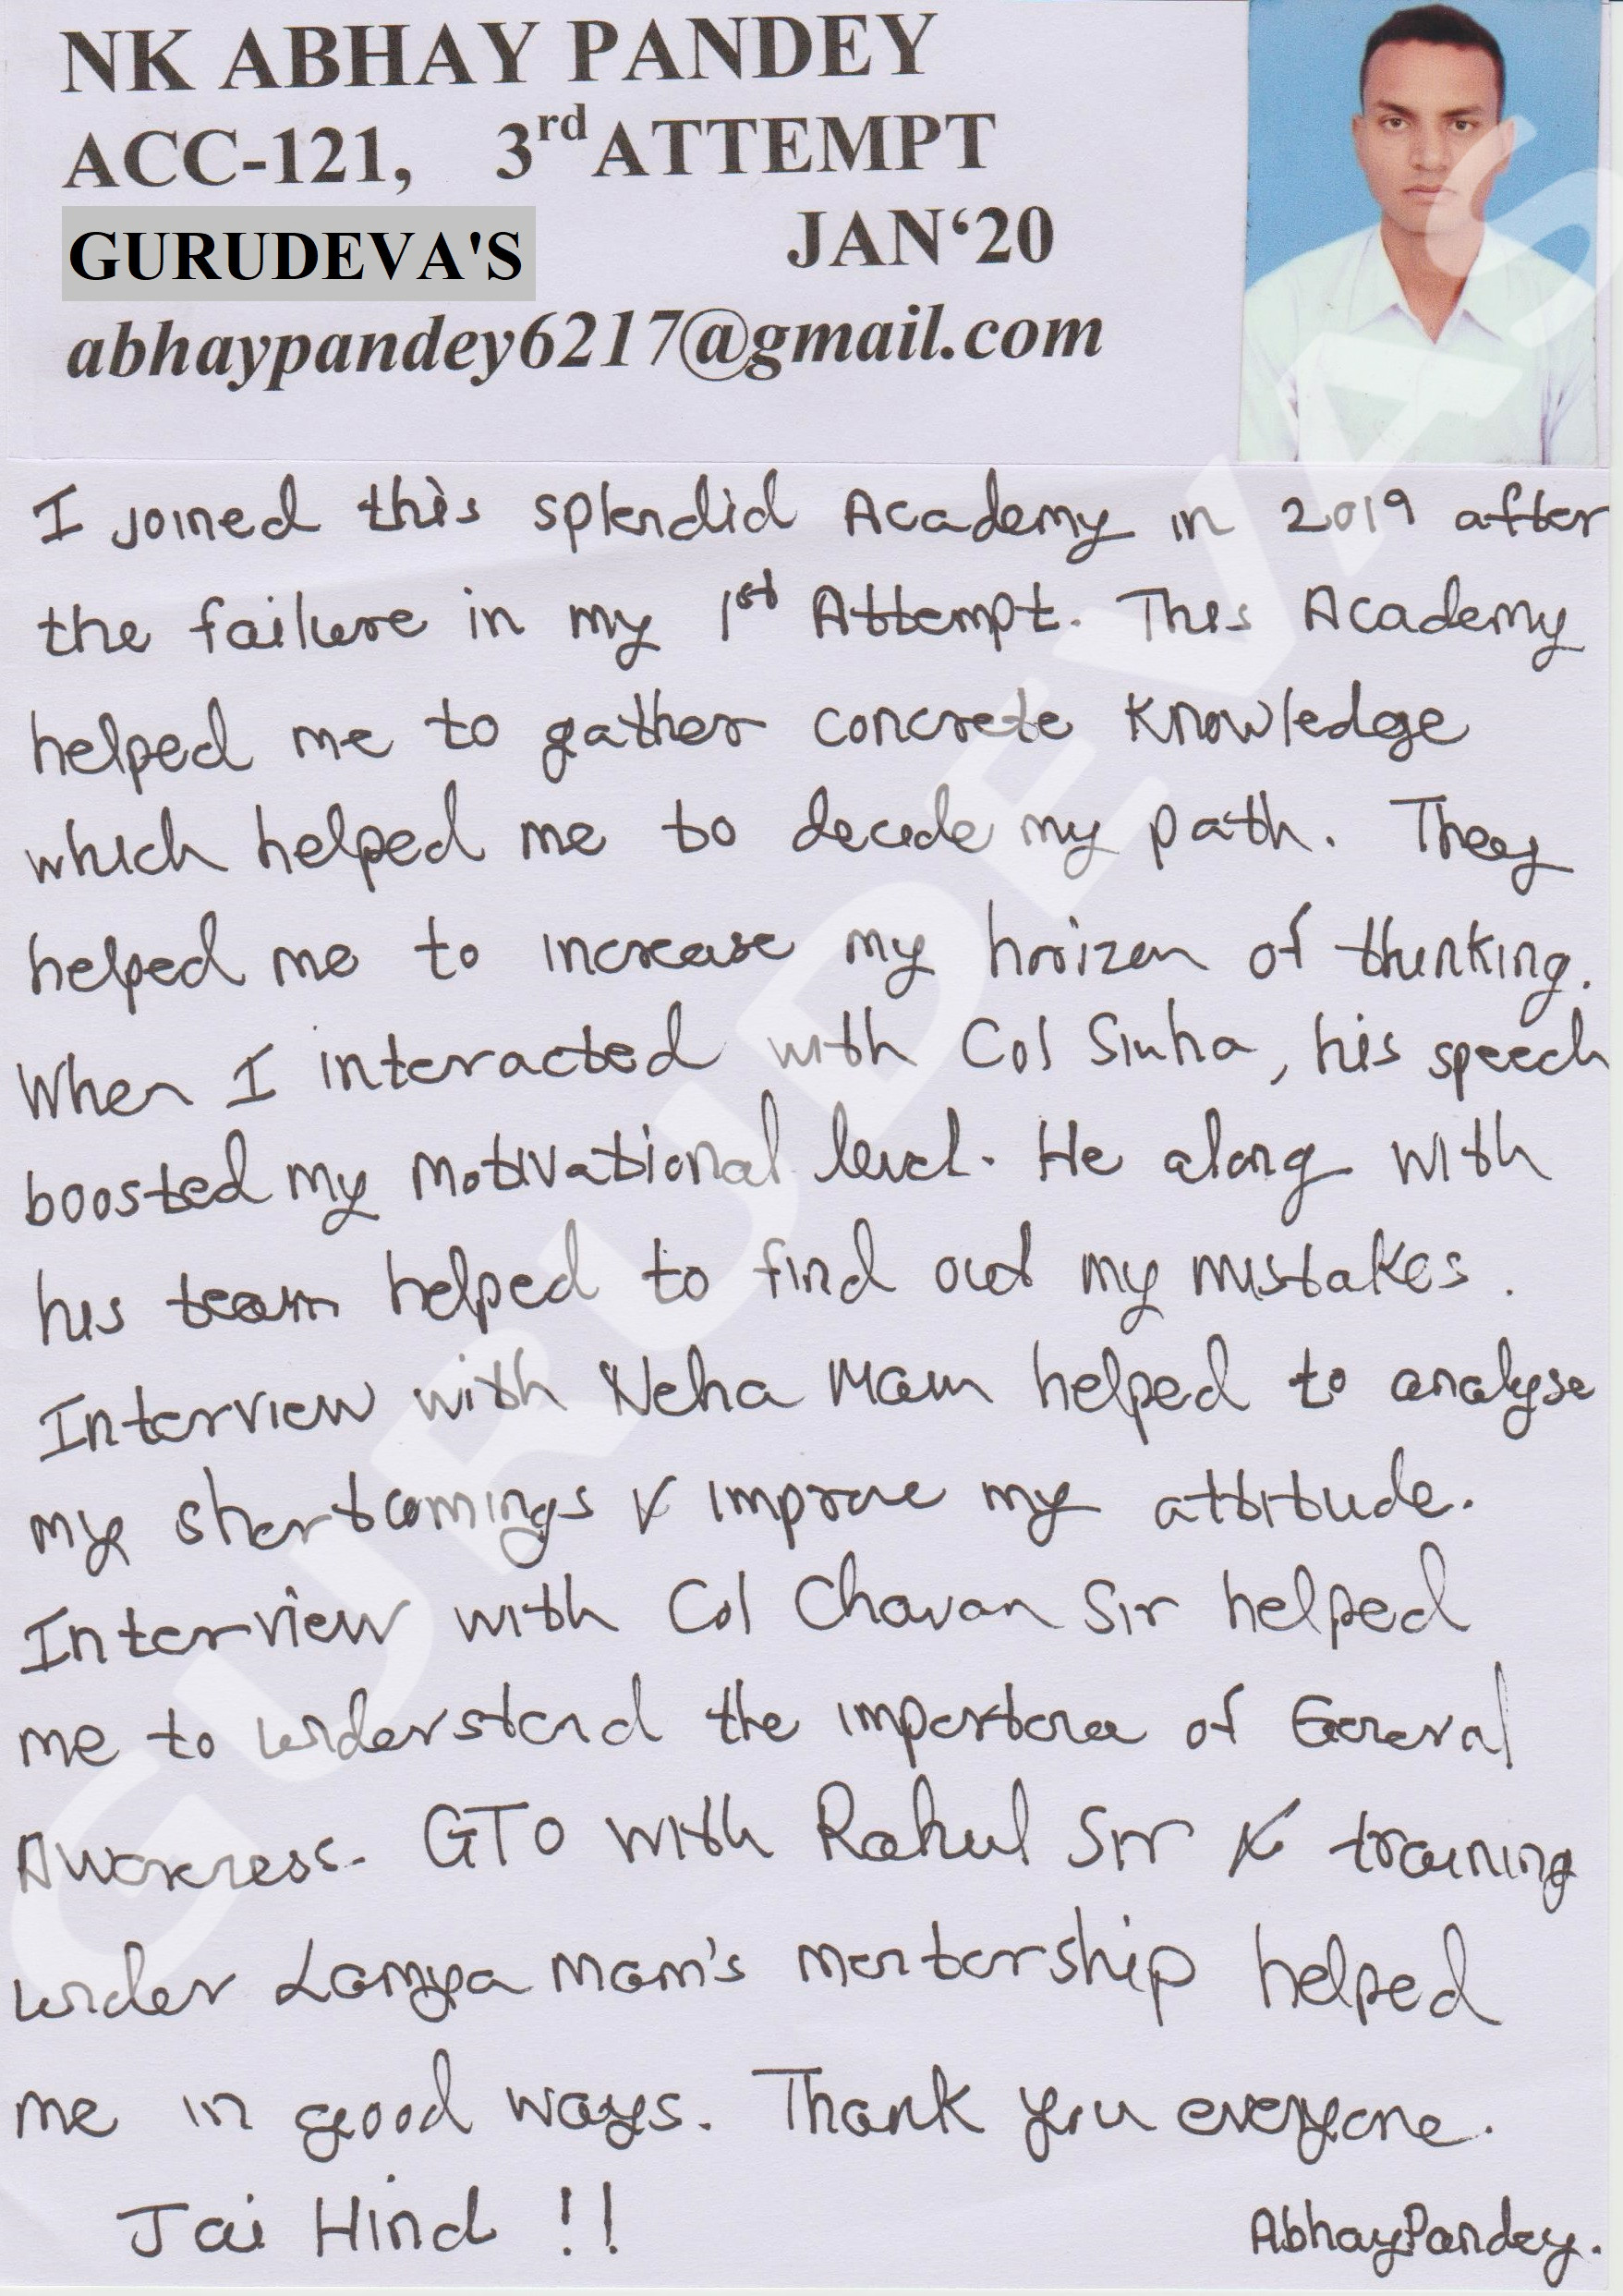 NK ABHAY PANDEY
ACC-121, 3rd ATTEMPT
GURUDEVA'S JAN‘20
abhaypandey6217@gmail.com
I joined this splendid Academy in 2019 after
the failure in my 1st Attempt. This Academy
helped me to gather concrete Knowledge
which helped me to decide my path. They
helped me to increase my horizen of thinking.
When I interacted with Col Sinha, his speech
boosted my motivational level. He along with
his team helped to find out my mistakes.
Interview with Neha Mam helped to analyse
my shortcomings & improve my attitude.
Interview with Col Chavan Sir helped
me to understand the importance of General
Awareness. GTO with Rahul Sir & training
under Mam's mentorship helped
me in good ways. Thank you everyone.
Jai Hind !! Abhay Pandey.
GURUDEVAS